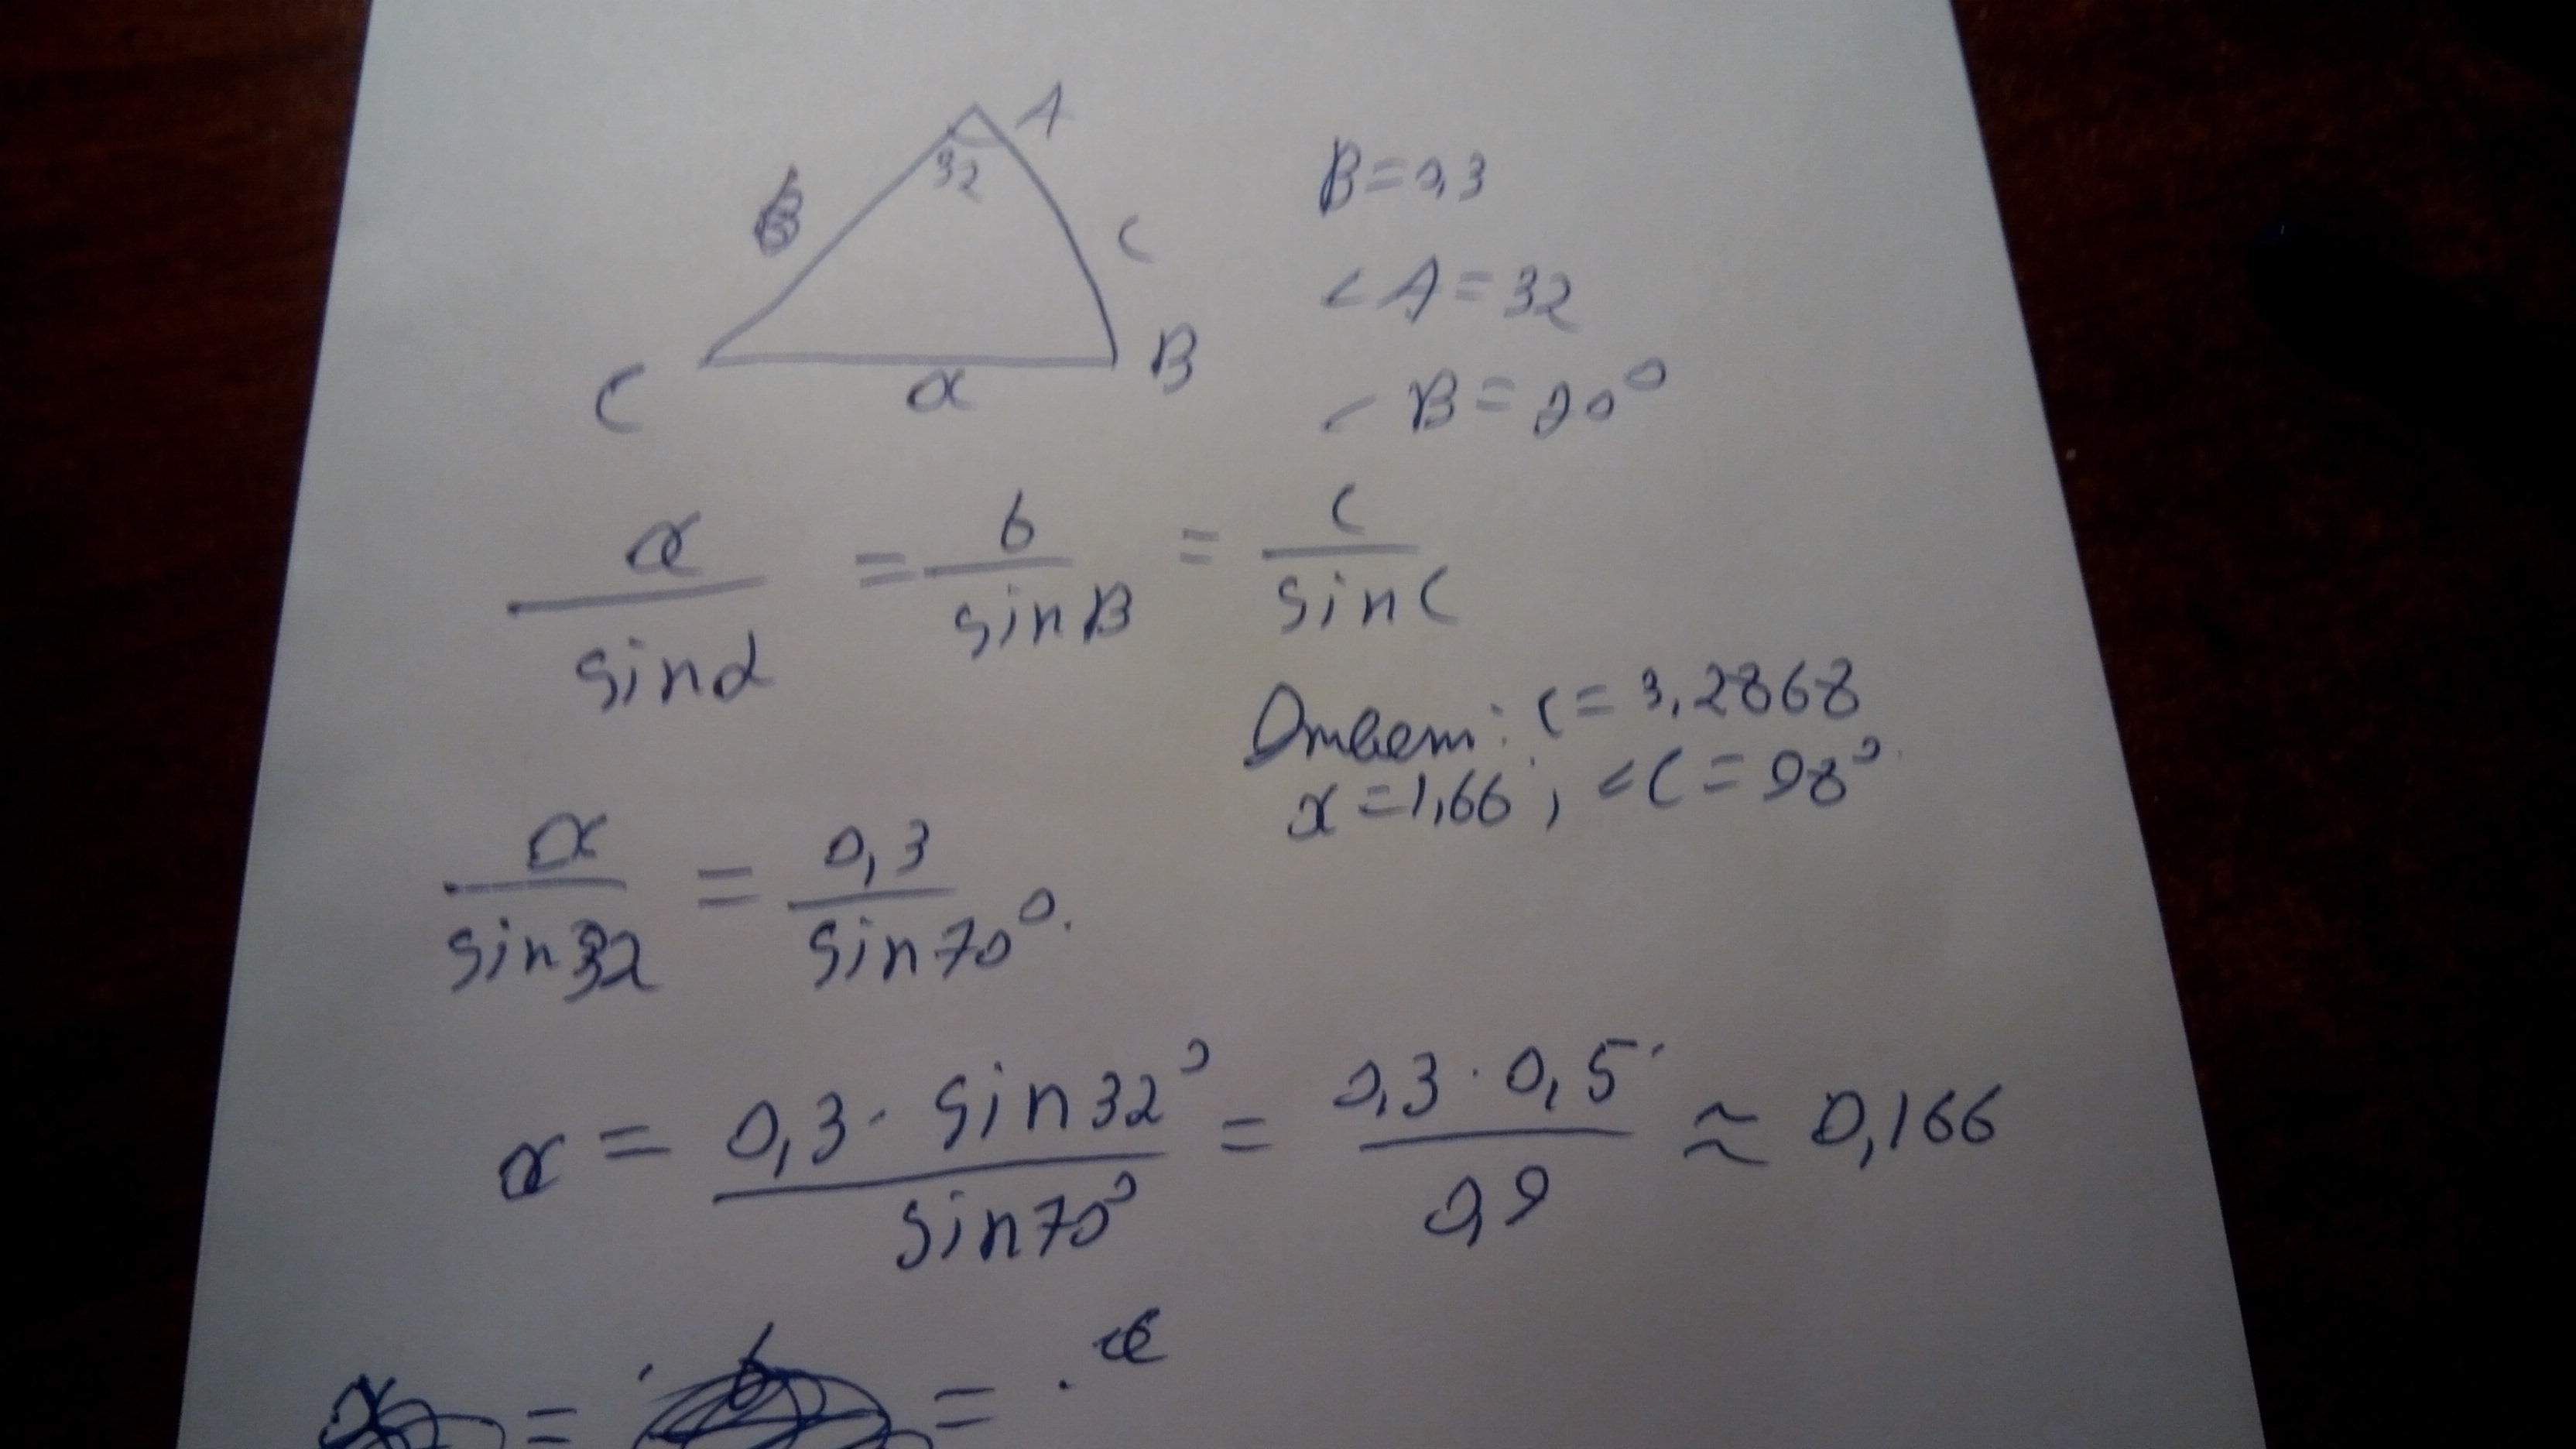 A
32
b
c
C
a
B
B = 0,3
∠A = 32
∠B = 70°
a / sin α = b / sin B = c / sin C
Ответ: c = 3,2868
x = 1,66; ∠C = 98°.
a / sin 32 = 0,3 / sin 70°.
a = 0,3 · sin 32° / sin 70° = 0,3 · 0,5 / 0,9 ≈ 0,166
= =